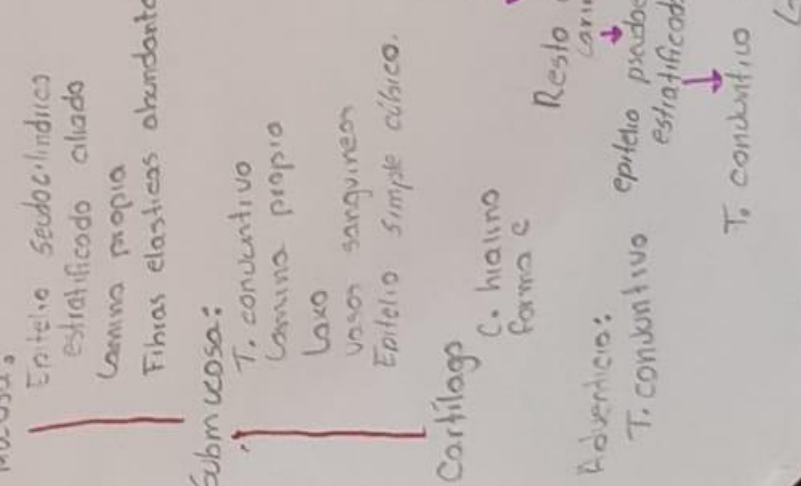 Mucosa:
Epitelio seudocilindrico
estratificado ciliado
Lamina propia
Fibras elasticas abundante
Submucosa:
T. conjuntivo
Lamina propia
Laxo
vasos sanguineos
Epitelio simple cúbico.
Cartílago
C. hialino
forma c
Adventicia:
T. conjuntivo
Resto
epitelio pseudo
estratificad
T. conjuntivo